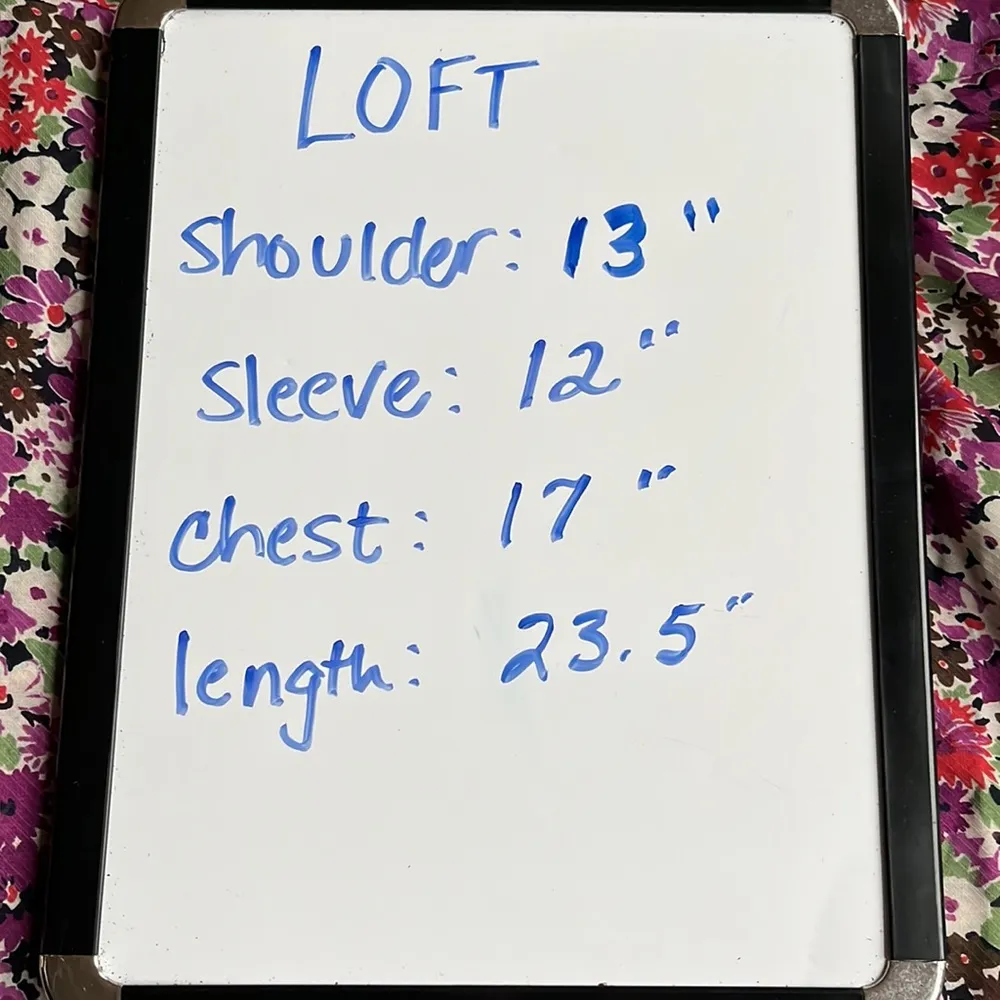 LOFT
Shoulder: 13"
Sleeve: 12"
Chest: 17"
length: 23.5"